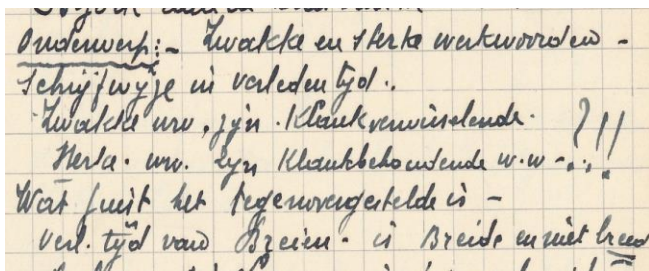 Onderwerp:- Zwakke en sterke werkwoorden -
Schrijfwijze in verleden tijd.
Zwakke ww. zijn Klankverwisselende.
Sterke. ww. zijn Klankbehoudende w.w - ?!!
Wat juist het tegenovergestelde is -
verl. tijd van Breien - is Breide en niet breed